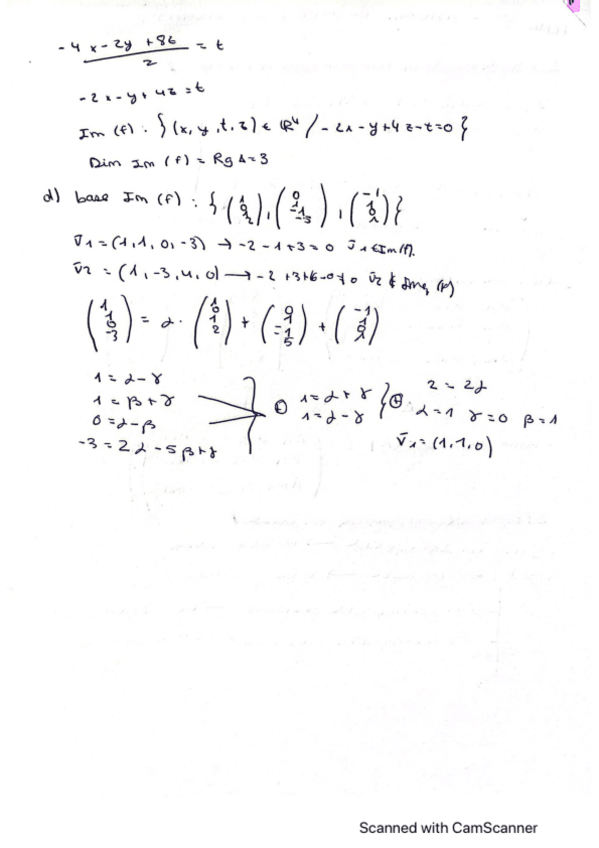 -4x-2y+8z / 2 = t
-2x-y+4z=t
Im (f): {(x, y, t, z) ∈ ℝ⁴ / -2x-y+4z-t=0}
Dim Im (f) = Rg A = 3
d) base Im (f): { (1 0 1 2), (0 1 -1 -5), (-1 1 0 1) }
v̄1 = (1, 1, 0, -3) → -2-1+3=0 v̄1 ∈ Im(f).
v̄2 = (1, -3, 4, 0) → -2+3+6-0≠0 v̄2 ∉ Img (f)
(1 1 0 -3) = α · (1 0 1 2) + (0 1 -1 5) + (-1 1 0 1)
1 = α - γ
1 = β + γ
0 = α - β
-3 = 2α - 5β + γ
1 = α + γ
1 = α - γ
2 = 2α
α=1 γ=0 β=1
v̄1 = (1, 1, 0)
Scanned with CamScanner